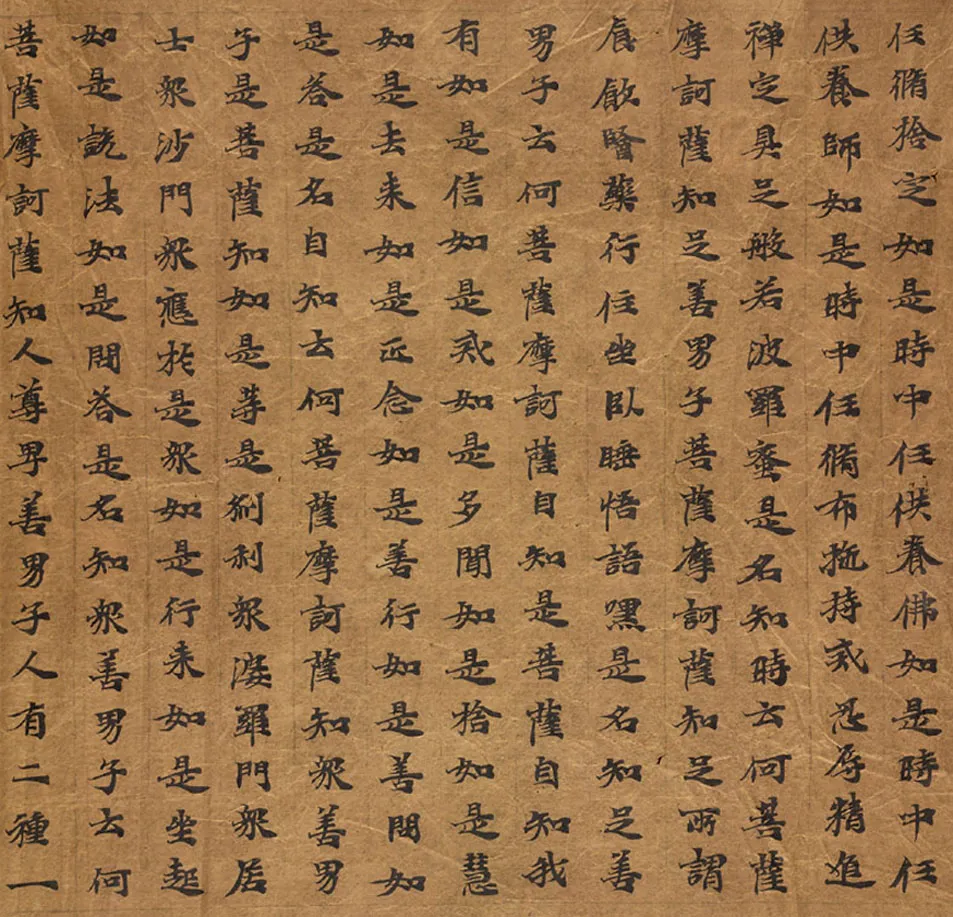 任脩捨定如是時中任供養佛如是時中任
供養師如是時中任脩布施持戒忍辱精進
禅定具足般若波羅蜜是名知時云何菩薩
摩訶薩知足善男子菩薩摩訶薩知足所謂
食飲醫藥行住坐臥睡悟語嘿是名知足善
男子云何菩薩摩訶薩自知是菩薩自知我
有如是信如是戒如是多聞如是捨如是慧
如是去来如是正念如是善行如是善問如
是答是名自知云何菩薩摩訶薩知衆善男
子是菩薩知如是等是刹利衆婆羅門衆居
士衆沙門衆應於是衆如是行来如是坐起
如是說法如是問答是名知衆善男子云何
菩薩摩訶薩知人尊卑善男子人有二種一